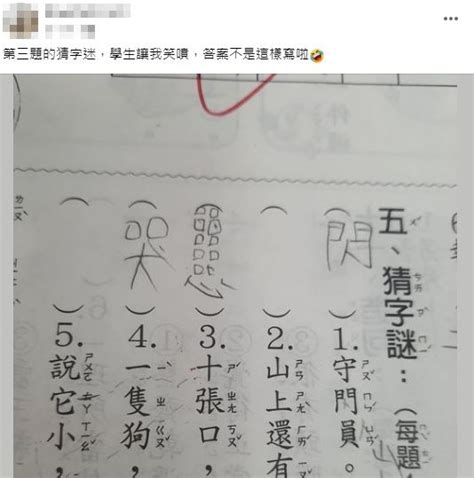 第三題的猜字迷，學生讓我笑噴，答案不是這樣寫啦🤣
五、猜字謎：（每題
（閃）1. 守門員。
（ ）2. 山上還有
（ ）3. 十張口，
（哭）4. 一隻狗，
（ ）5. 說它小，